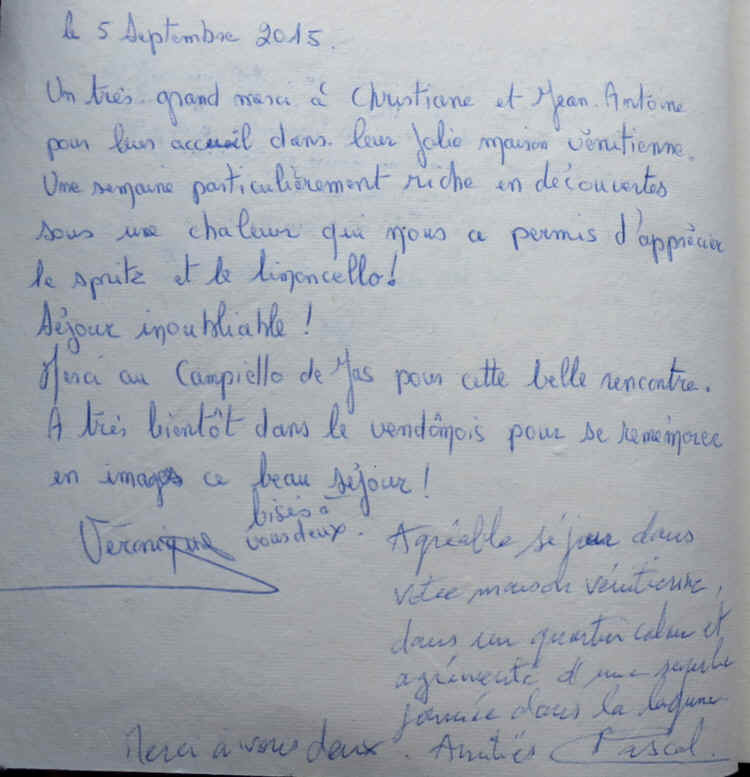 le 5 Septembre 2015.
Un très grand merci à Christiane et Jean-Antoine
pour leur accueil dans leur jolie maison vénitienne.
Une semaine particulièrement riche en découvertes
sous une chaleur qui nous a permis d'apprécier
le spritz et le limoncello!
Séjour inoubliable !
Merci au Campiello de Mas pour cette belle rencontre.
A très bientôt dans le vendômois pour se remémorer
en images ce beau séjour !
bises à
Véronique vous deux.
Agréable séjour dans
votre maison vénitienne,
dans un quartier calme et
agrémenté d'une superbe
journée dans la lagune.
Merci à vous deux. Amitiés Pascal.